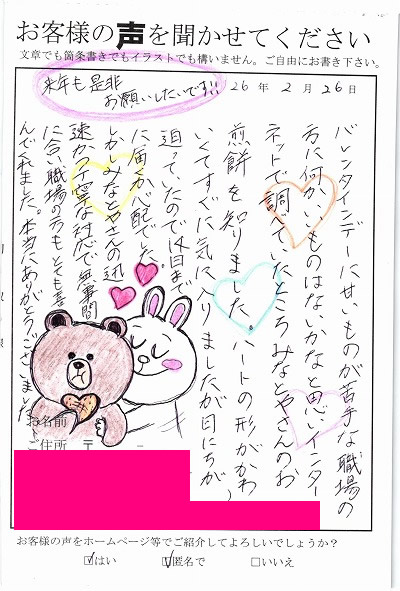 お客様の声を聞かせてください
文章でも箇条書きでもイラストでも構いません。ご自由にお書き下さい。
来年も是非
お願いしたいです!!!
26年2月26日
バレンタインデーに甘いものが苦手な職場の
方に何かいいものはないかなと思いインター
ネットで調べていたところみなとやさんのお
煎餅を知りました。ハートの形がかわ
いくてすぐに気に入りましたが日にちが
迫っていたので14日まで
に届くか心配でした。
しかしみなとやさんの迅
速かつ丁寧な対応で無事間
に合い職場の方もとても喜
んでくれました。本当にありがとうございました。
お名前
ご住所 〒 －
お客様の声をホームページ等でご紹介してよろしいでしょうか?
☑はい ☑匿名で □いいえ